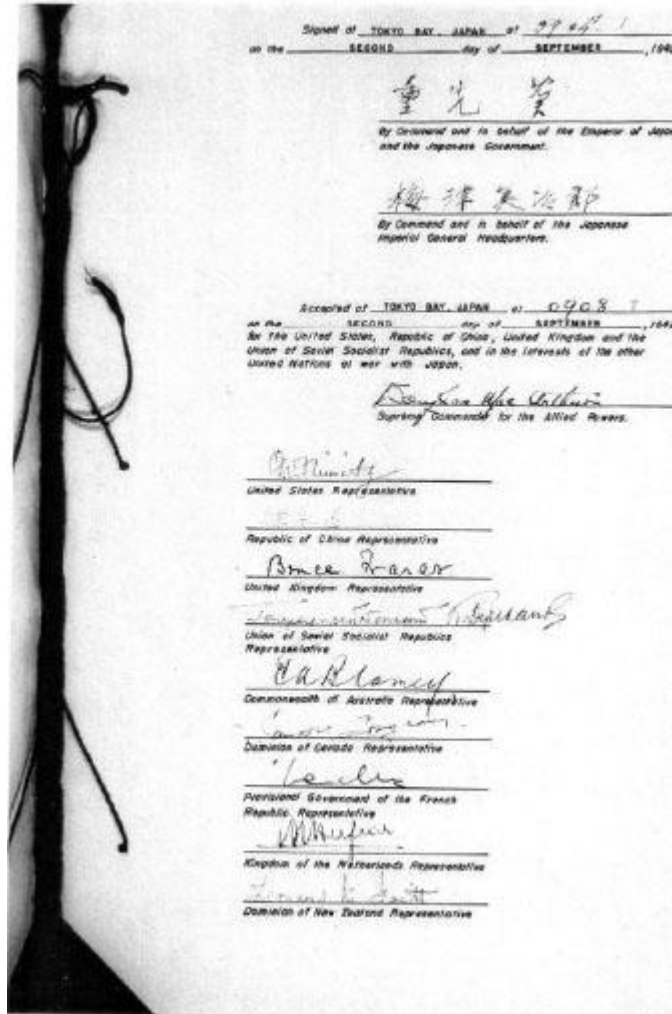 Signed at TOKYO BAY, JAPAN at 0904 I
on the SECOND day of SEPTEMBER , 194
重光 葵
By Command and in behalf of the Emperor of Japan
and the Japanese Government.
梅津美治郎
By Command and in behalf of the Japanese
Imperial General Headquarters.
Accepted at TOKYO BAY, JAPAN at 0908 I
on the SECOND day of SEPTEMBER , 194
for the United States, Republic of China, United Kingdom and the
Union of Soviet Socialist Republics, and in the interests of the other
United Nations at war with Japan.
Douglas MacArthur
Supreme Commander for the Allied Powers.
C.W. Nimitz
United States Representative
Republic of China Representative
Bruce Fraser
United Kingdom Representative
Union of Soviet Socialist Republics
Representative
T.A. Blamey
Commonwealth of Australia Representative
Dominion of Canada Representative
Provisional Government of the French
Republic Representative
Kingdom of the Netherlands Representative
Dominion of New Zealand Representative